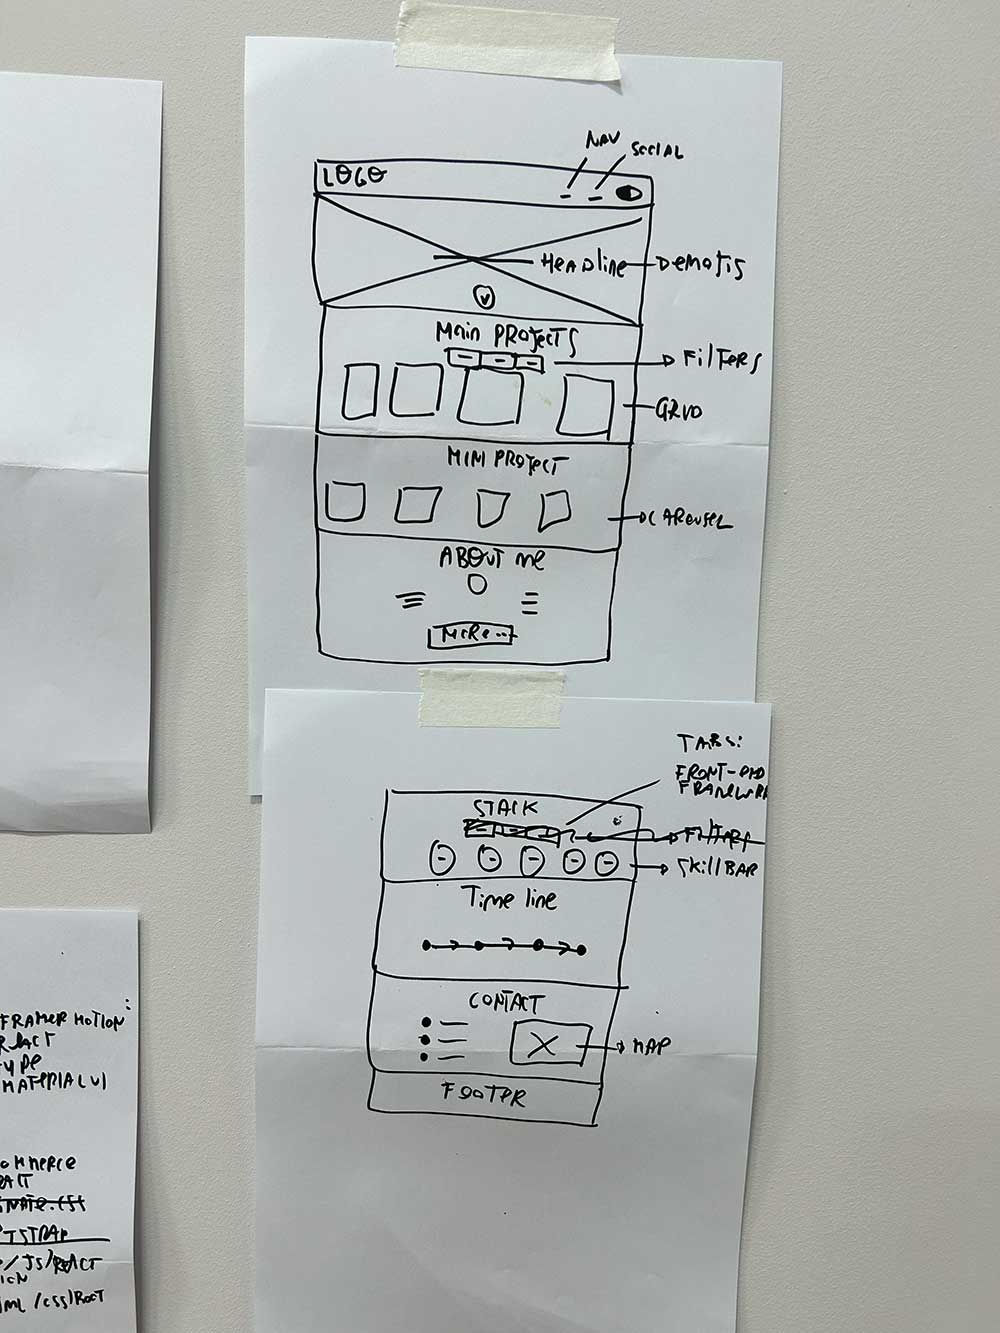 NAV
SOCIAL
LOGO
HEADline
DEMOTIS
Main PROJECTS
FilTERS
GRID
MINI PROJECT
CAROUSEL
ABOUT ME
MORE...
TABS:
FRONT-END
FRAMEWOR
STACK
FilTERS
SKillBAR
Time line
CONTACT
MAP
FOOTER
FRAMER MOTION:
REACT
TYPE
MATERIAL UI
OMMERCE
ACT
/JS/REACT
/CSS/BOOT